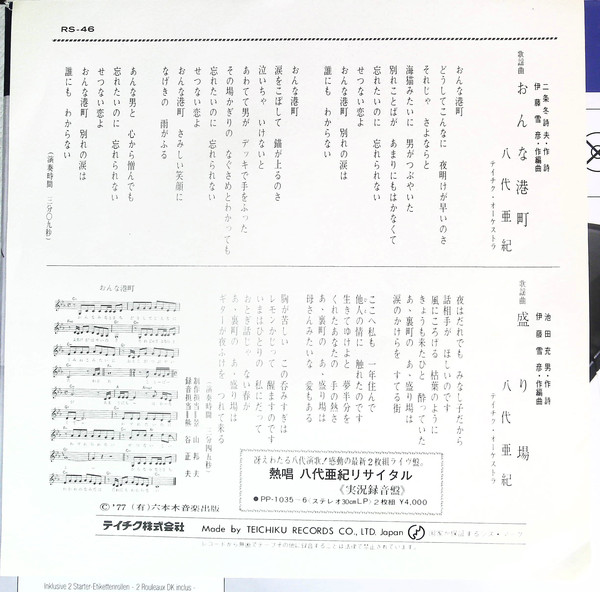 RS-46
歌謡曲
おんな港町
二条冬詩夫・作詩
伊藤雪彦・作編曲
八代亜紀
テイチク・オーケストラ
おんな港町
どうしてこんなに 夜明けが早いのさ
それじゃ さよならと
海猫みたいに 男がつぶやいた
別れことばが あまりにもはかなくて
忘れたいのに 忘れられない
せつない恋よ
おんな港町 別れの涙は
誰にも わからない
おんな港町
涙をこぼして 錨が上るのさ
泣いちゃ いけないと
あわてて男が デッキで手をふった
その場かぎりの なぐさめとわかっても
忘れたいのに 忘れられない
せつない恋よ
おんな港町 さみしい笑顔に
なげきの 雨がふる
あんな男と 心から憎んでも
忘れたいのに 忘れられない
せつない恋よ
おんな港町 別れの涙は
誰にも わからない
(演奏時間 三分〇九秒)
歌謡曲
盛り場
池田充男・作詩
伊藤雪彦・作編曲
八代亜紀
テイチク・オーケストラ
夜はだれでも みなし子だから
話相手が ほしいのです
風にころげる 枯葉のように
きょうも来たひと 酔っていた
あゝ裏町の あゝ盛り場は
涙のかけらを すてる街
ここへ私も 一年住んで
他人の情に 触れたのです
生きてゆけよと 夢半分を
くれたあなたの 手の熱さ
あゝ裏町の あゝ盛り場は
母さんみたいな 愛もある
胸が苦しい この呑みすぎは
レモンかじって 醒ますのです
いまはひとりの 私にだって
おとぎ話じゃ ない春が
あゝ裏町の あゝ盛り場は
ギターが夜ふけを つれて来る
おんな港町
冴えわたる八代演歌！感動の最新2枚組ライヴ盤。
熱唱 八代亜紀リサイタル
《実況録音盤》
●PP-1035～6〈ステレオ30cmLP〉2枚組 ¥4,000
©'77 (有)六本木音楽出版
テイチク株式会社 Made by TEICHIKU RECORDS CO., LTD. Japan
レコードから無断でテープその他に録音することは法律で禁止されています。
Inklusive 2 Starter-Etikettenrollen - 2 Rouleaux DK inclus -